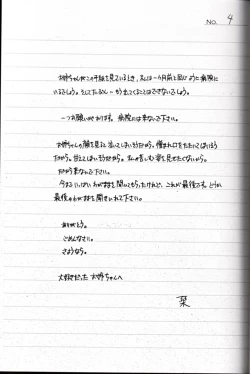 NO. 4
お姉ちゃんがこの手紙を見ているとき、私は一ヶ月前と同じように病院に
いるでしょう。そしてたぶん、もう出てくることはできないでしょう。
一つお願いがあります。病院には来ないで下さい。
お姉ちゃんの顔を見ると泣いてしまいそうだから。憎まれ口をたたいてしまいそう
だから。甘えてしまいそうだから。私の苦しむ姿を見せたくないから。
だから来ないで下さい。
今までいっぱいわがままを聞いてもらったけれど、これが最後です。どうか
最後のわがままを聞き入れて下さい。
ありがとう。
ごめんなさい。
さようなら。
大好きだったお姉ちゃんへ
栞